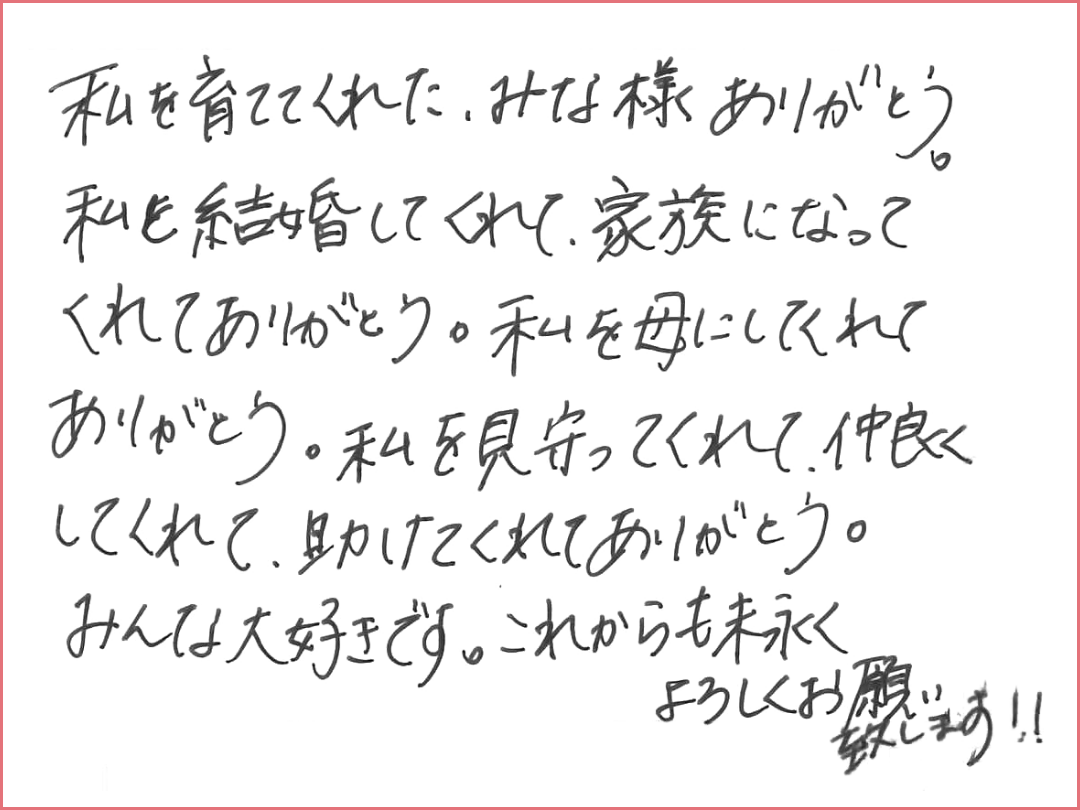 私を育ててくれた、みな様ありがとう。
私と結婚してくれて、家族になって
くれてありがとう。私を母にしてくれて
ありがとう。私を見守ってくれて、仲良く
してくれて、助けてくれてありがとう。
みんな大好きです。これからも末永く
よろしくお願い
致します!!